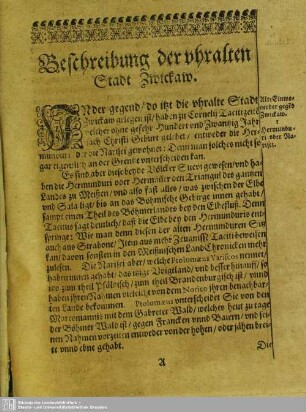 Beschreibung der vhralten
Stadt Zwickaw.
IN der gegend / do itzt die vhralte Stadt
Zwickaw gelegen ist / haben zu Cornelij Taciti zeit /
welcher ohne gefehr Hundert vnd Zwantzig Jahr
nach Christi Geburt gelebet / entweder die Her-
munduri / o der die Narisci gewohnet: Denn man solches nicht so
gar eigentlich an der Grentz vnterscheiden kan.
Es sind aber diese beyde Völcker Suevi gewesen / vnd ha-
ben die Hermunduri oder Hermöster den Triangul des gantzen
Landes zu Meissen / vnd also fast alles / was zwischen der Elbe
vnd Sala ligt / biß an das Böhmische Gebirge innen gehabt /
sampt einem Theil des Böhmerlandes bey den Elbefluß. Denn
Tacitus sagt deutliche / daß die Elbe bey den Hermunduris ent-
springe: Wie man denn diesen der alten Hermundurer Sitz
auch aus Strabone / Item aus mehr Zeugnis Taciti beweisen
kan / davon sonsten in den Meißnischen Land Chronicken mehr
zulesen. Die Narisci aber / welche Ptolomæus Variscos nennet /
haben innen gehabt / das itzige Voigtland / vnd besser hinauff / wo
nu zum theil Pfältzisch / zum theil Brandenburgisch ist / vnnd
haben ihren Nahmen vieleicht von dem Norico ihren benachbar-
ten Lande bekommen. Ptolomæus vnterscheidet Sie von den
Marcomannis mit dem Gabreter Wald / welches heut zu tage
der Böhmer Wald ist / gegen Francken vnnd Bayern / vnd sei-
nen Nahmen vorzeiten entweder von der hohen / oder jähen brei-
te vnnd ebne gehabt.
Die
A
Alte Einwo-
ner der gegēd
Zwickaw.
Hermundu-
ri oder Na-
risci.